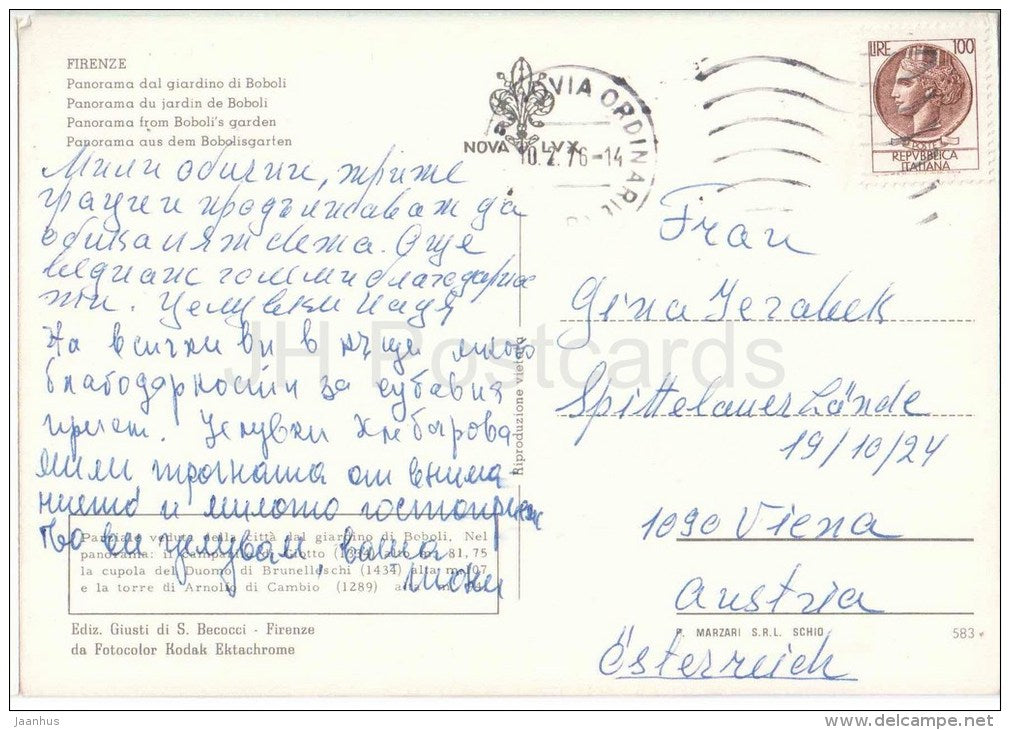 FIRENZE
Panorama dal giardino di Boboli
Panorama du jardin de Boboli
Panorama from Boboli's garden
Panorama aus dem Bobolisgarten
NOVA LVX
VIA ORDINARIE
10.2.76-14
LIRE 100
POSTE
REPVBBLICA
ITALIANA
Мили
и продължаваме да
Още
веднъж големи благодарно
сти. Целувки Надя
На всички ви в къщи много
благодарности за хубавия
прием. Целувки Хлебарова
Мили трогната от внима
нието и милото гостоприем
ство ви целувам, ваша
Frau
Gina Jerabek
Spittelauer Lände
19/10/24
1090 Viena
Austria
Österreich
Parziale veduta della città dal giardino di Boboli. Nel
panorama: il Campanile di Giotto (1334) alto m. 81,75
la cupola del Duomo di Brunelleschi (1434) alta m. 107
e la torre di Arnolfo di Cambio (1289) alta m.
Ediz. Giusti di S. Becocci - Firenze
da Fotocolor Kodak Ektachrome
Riproduzione vietata
P. MARZARI S.R.L. SCHIO
583
JH Postcards
jaanhus
www.delcampe.net